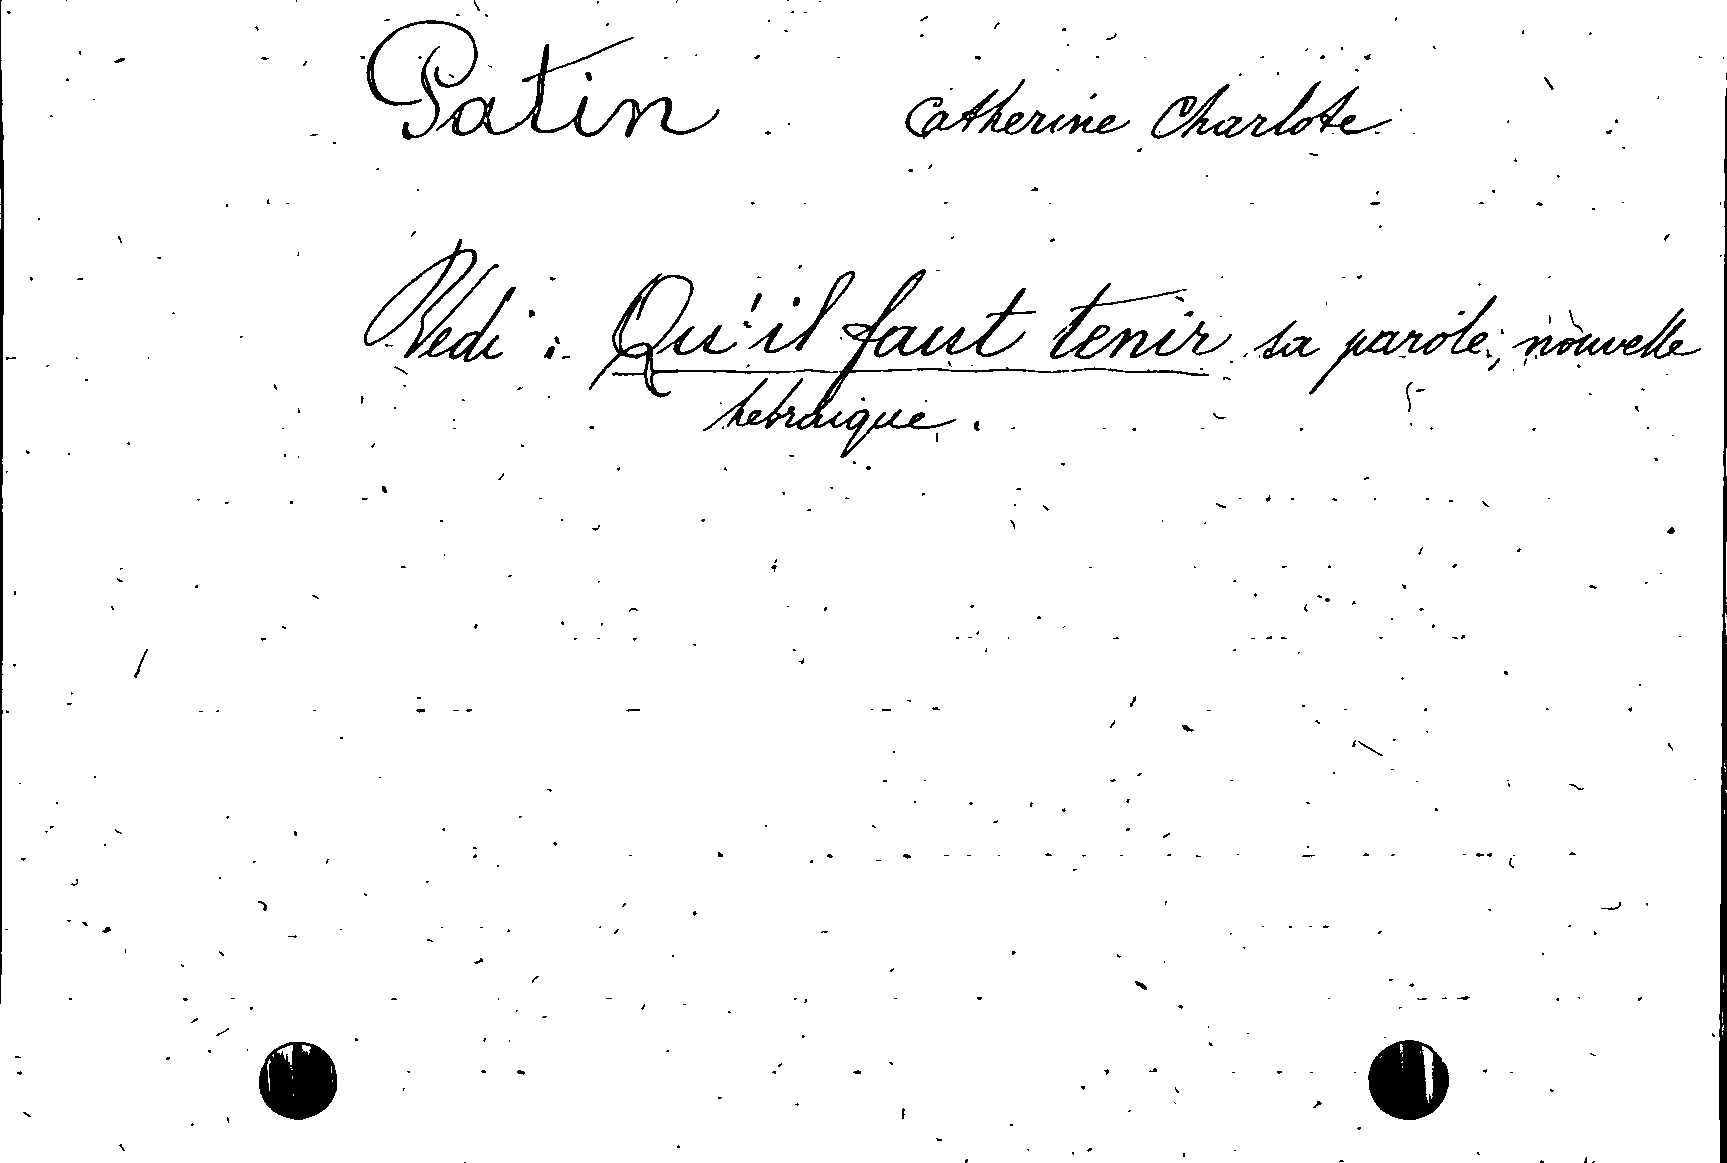 Patin Catherine Charlote
Vedi : Qu'il faut tenir sa parole; nouvelle
hebraique.